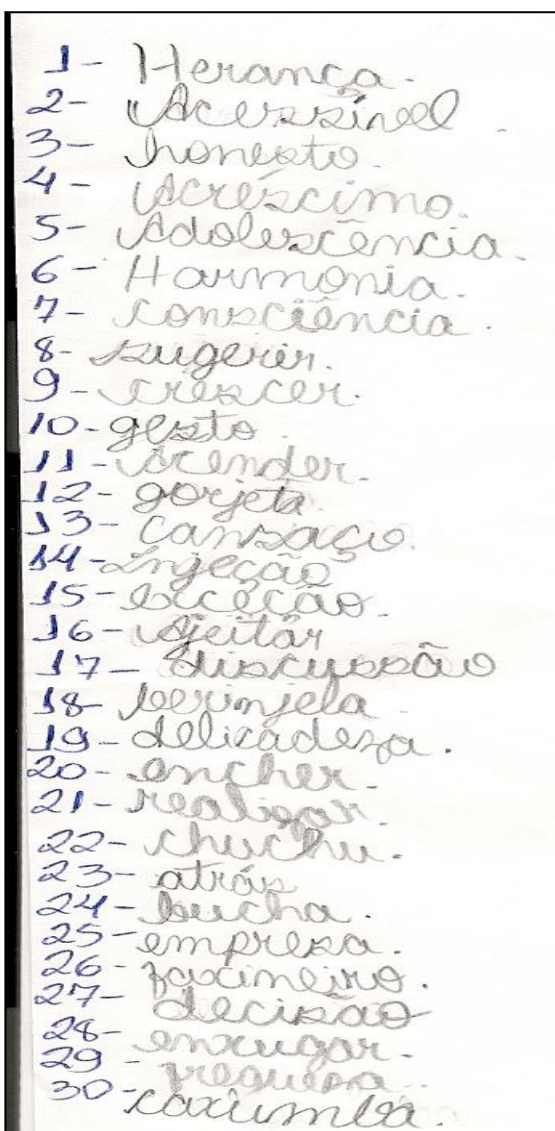 1- Herança.
2- Acessível.
3- honesto.
4- Acréscimo.
5- Adolescência.
6- Harmonia.
7- consciência.
8- sugerir.
9- crescer.
10- gesto.
11- Acender.
12- gorjeta
13- cansaço.
14- Ingeção
15- exceção.
16- Ajeitar
17- discussão
18- berinjela
19- delicadeza.
20- encher.
21- realizar.
22- chuchu.
23- atrás
24- bucha.
25- empresa.
26- faxineiro.
27- decisão
28- enxugar.
29- freguesa.
30- caxumba.